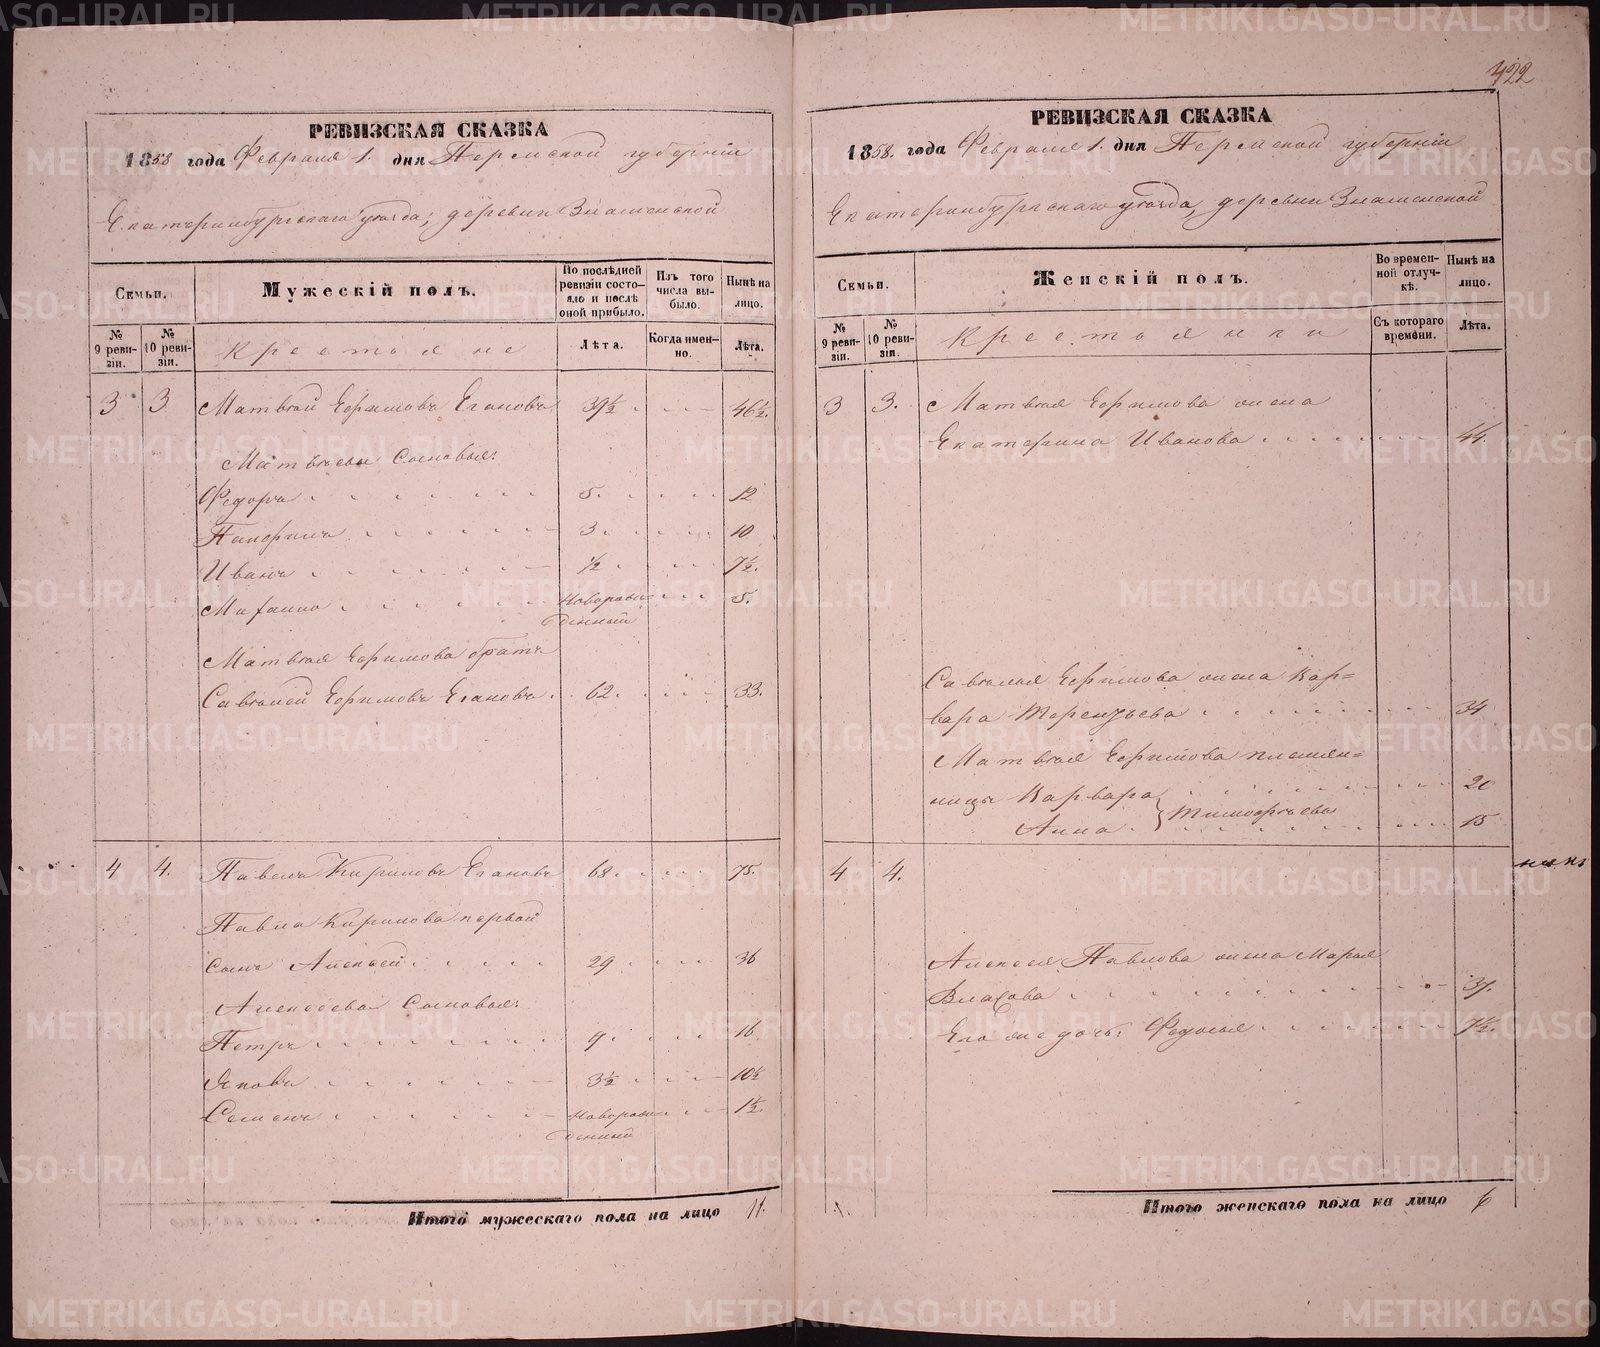 422
РЕВИЗСКАЯ СКАЗКА
1858 года Февраля 1. дня Пермской губерніи
Екатеринбургскаго уѣзда, деревни Знаменской
Семьи.
Мужескій полъ.
По послѣдней ревизіи состояло и послѣ оной прибыло.
Изъ того числа выбыло.
Нынѣ на лицо.
№ 9 ревизіи.
№ 10 ревизіи.
Крестьяне
Лѣта.
Когда именно.
Лѣта.
3 3 Матвѣй Ефимовъ Егановъ 39½ 46½.
Матвѣевы Сыновья:
Федоръ 5. 12
Панфилъ 3. 10
Иванъ ½ 7½.
Михаило Новорож- 5.
денный
Матвѣя Ефимова братъ
Савелей Ефимовъ Егановъ. 62. 33.
4 4. Павелъ Кириловъ Егановъ 68. 75.
Павла Кирилова первой
сынъ Алексѣй 29 36
Алексѣева Сыновья:
Петръ 9. 16
Яковъ 3½ 10½
Семенъ Новорож- 1½.
денный
Итого мужескаго пола на лицо 11.
РЕВИЗСКАЯ СКАЗКА
1858. года Февраля 1. дня Пермской губерніи
Екатеринбургскаго уѣзда, деревни Знаменской
Семьи.
Женскій полъ.
Во временной отлучкѣ.
Нынѣ на лицо.
№ 9 ревизіи.
№ 10 ревизіи.
Крестьянки
Съ котораго времени.
Лѣта.
3 3. Матвѣя Ефимова жена
Екатерина Иванова 44.
Савелья Ефимова жена Вар=
вара Терентьева 34
Матвѣя Ефимова племян=
ницы Варвара 20
Анна } Тимофѣевы 15
4 4.
Алексѣя Павлова жена Марья
Власова 37.
Его же дочь: Федосья 7½.
Итого женскаго пола на лицо 6
METRIKI.GASO-URAL.RU